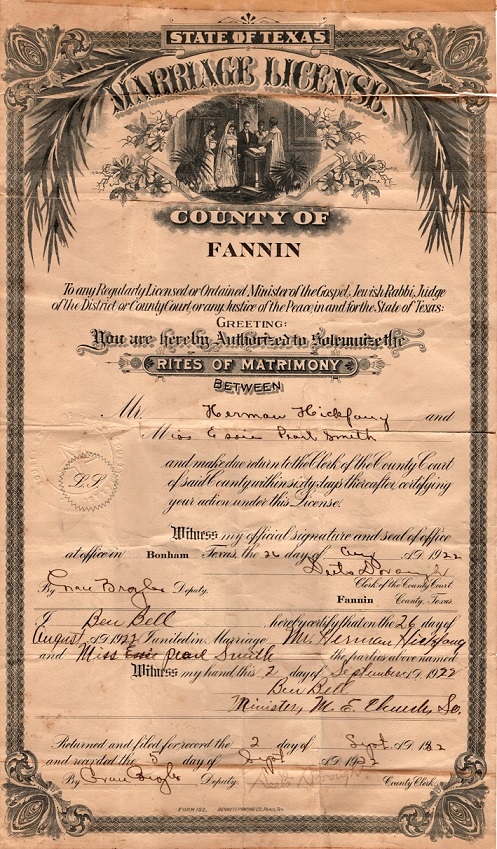 STATE OF TEXAS
MARRIAGE LICENSE.
COUNTY OF
FANNIN
To any Regularly Licensed or Ordained Minister of the Gospel, Jewish Rabbi, Judge
of the District or County Court, or any Justice of the Peace, in and for the State of Texas:
GREETING:
You are hereby Authorized to Solemnize the
RITES OF MATRIMONY
BETWEEN
Mr. Herman Hickfang and
Miss Essie Pearl Smith
and make due return to the Clerk of the County Court
of said County within sixty days thereafter, certifying
your action under this License.
Witness my official signature and seal of office
at office in Bonham Texas, the 26 day of Aug A.D. 1922
Clerk of the County Court
By Deputy. Fannin County, Texas
I Ben Bell hereby certify that on the 26 day of
August A.D. 1922 I united in Marriage Mr. Herman Hickfang
and Miss Essie Pearl Smith the parties above named
Witness my hand this 2 day of September A.D. 1922
Ben Bell
Minister, M. E. Church, So.
Returned and filed for record the 2 day of Sept A.D. 192
and recorded the 5 day of Sept A.D. 1922
By Deputy. County Clerk
FORM 193. BENNETT PRINTING CO., PARIS, TEX.